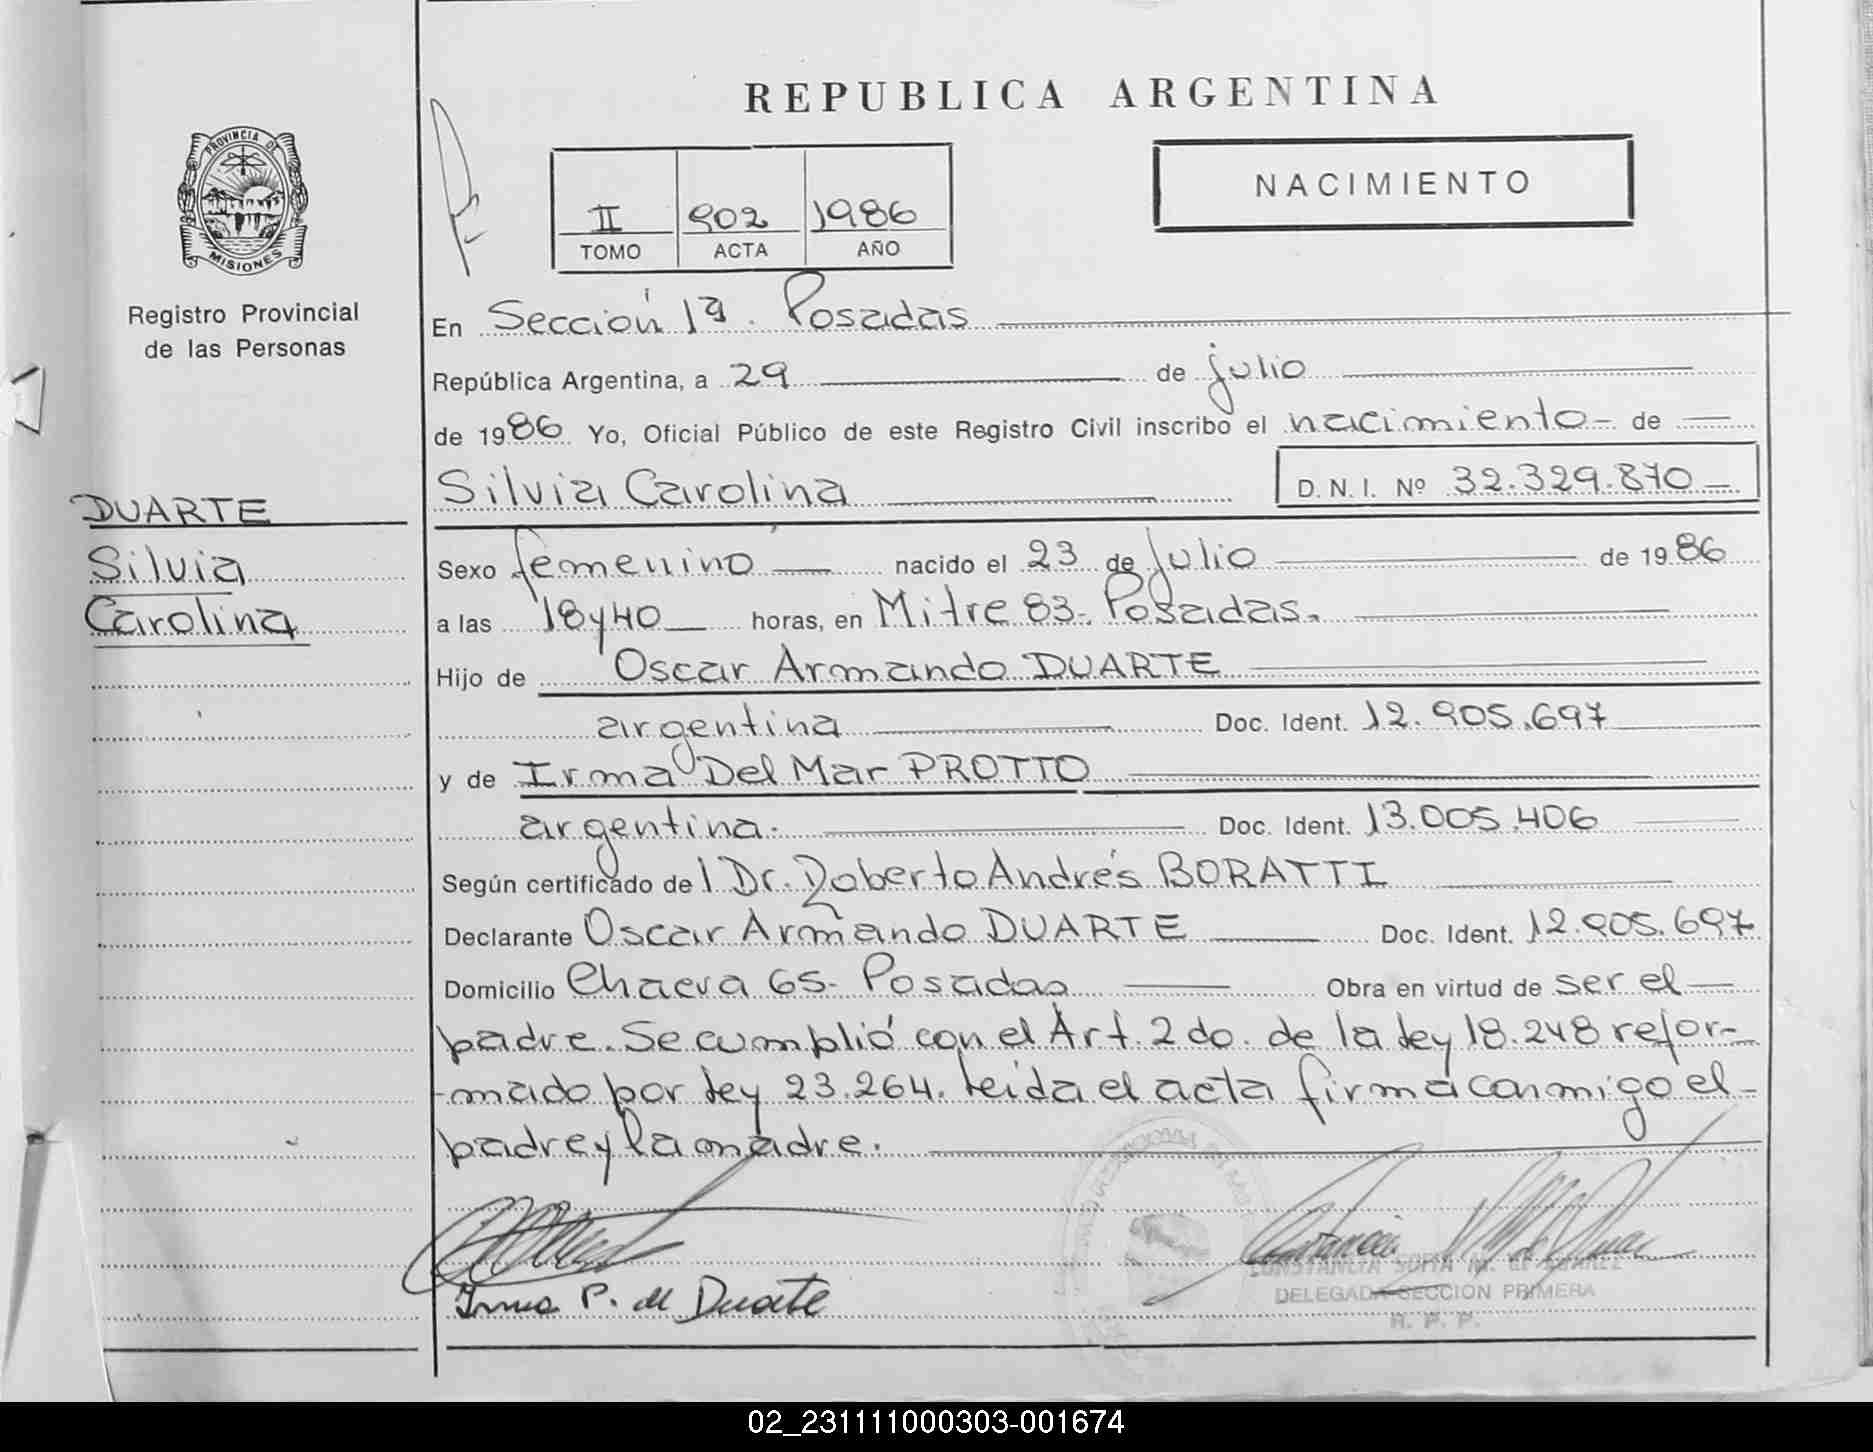 REPUBLICA ARGENTINA
PROVINCIA DE
MISIONES
Registro Provincial
de las Personas
II 902 1986
TOMO ACTA AÑO
NACIMIENTO
En Sección 1ª. Posadas
República Argentina, a 29 de julio
de 1986 Yo, Oficial Público de este Registro Civil inscribo el nacimiento de
Silvia Carolina D. N. I. Nº 32.329.870
DUARTE
Silvia
Carolina
Sexo femenino nacido el 23 de julio de 1986
a las 18 y 40 horas, en Mitre 83. Posadas.
Hijo de Oscar Armando DUARTE
argentina Doc. Ident. 12.905.697
y de Irma Del Mar PROTTO
argentina. Doc. Ident. 13.005.406
Según certificado del Dr. Roberto Andrés BORATTI
Declarante Oscar Armando DUARTE Doc. Ident. 12.905.697
Domicilio 65- Posadas Obra en virtud de ser el
padre. Se cumplió con el Art. 2do. de la Ley 18.248 refor-
-mado por Ley 23.264. Leida el acta firma conmigo el
padre y la madre.
Irma P. de Duarte
CONSTANCIA SOFIA M. de SUAREZ
DELEGADA SECCION PRIMERA
R. P. P.
02_231111000303-001674